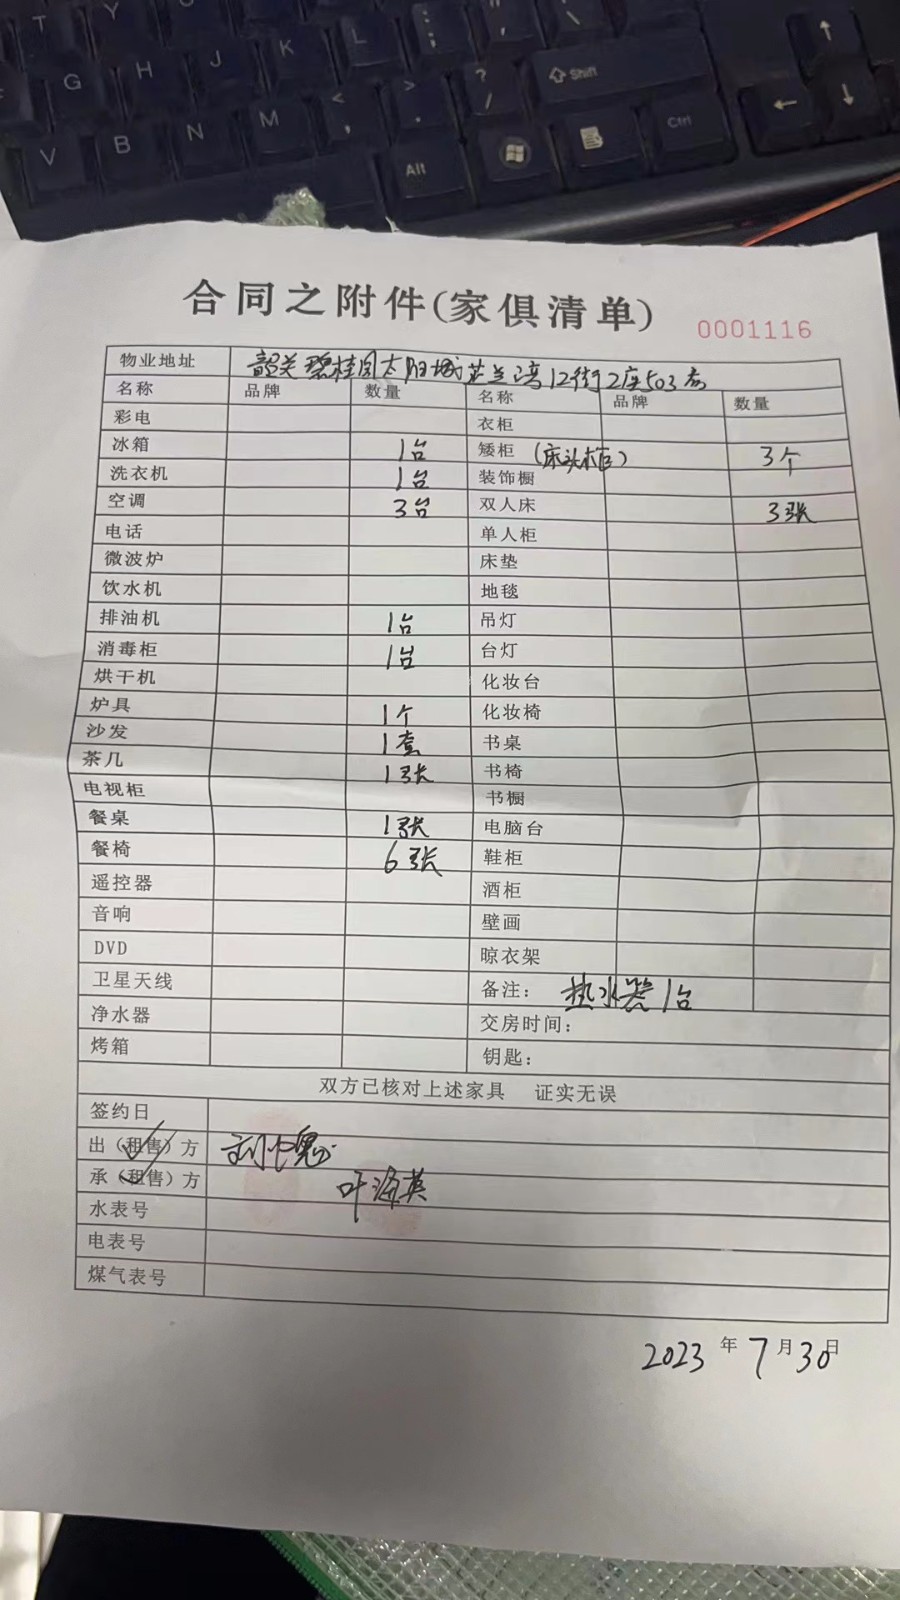 T Y
G H J K L : ;
? /
Shift
V B N M < , > .
Alt
Ctrl
合同之附件(家俱清单)
0001116
物业地址 韶关碧桂园太阳城芷兰湾12街2座503房
名称 品牌 数量 名称 品牌 数量
彩电 衣柜
冰箱 1台 矮柜 (床头柜) 3个
洗衣机 1台 装饰橱
空调 3台 双人床 3张
电话 单人柜
微波炉 床垫
饮水机 地毯
排油机 1台 吊灯
消毒柜 1台 台灯
烘干机 化妆台
炉具 1个 化妆椅
沙发 1套 书桌
茶几 1张 书椅
电视柜 书橱
餐桌 1张 电脑台
餐椅 6张 鞋柜
遥控器 酒柜
音响 壁画
DVD 晾衣架
卫星天线 备注: 热水器1台
净水器 交房时间:
烤箱 钥匙:
双方已核对上述家具 证实无误
签约日
出(租售)方
承(租售)方 叶海英
水表号
电表号
煤气表号
2023年7月30日